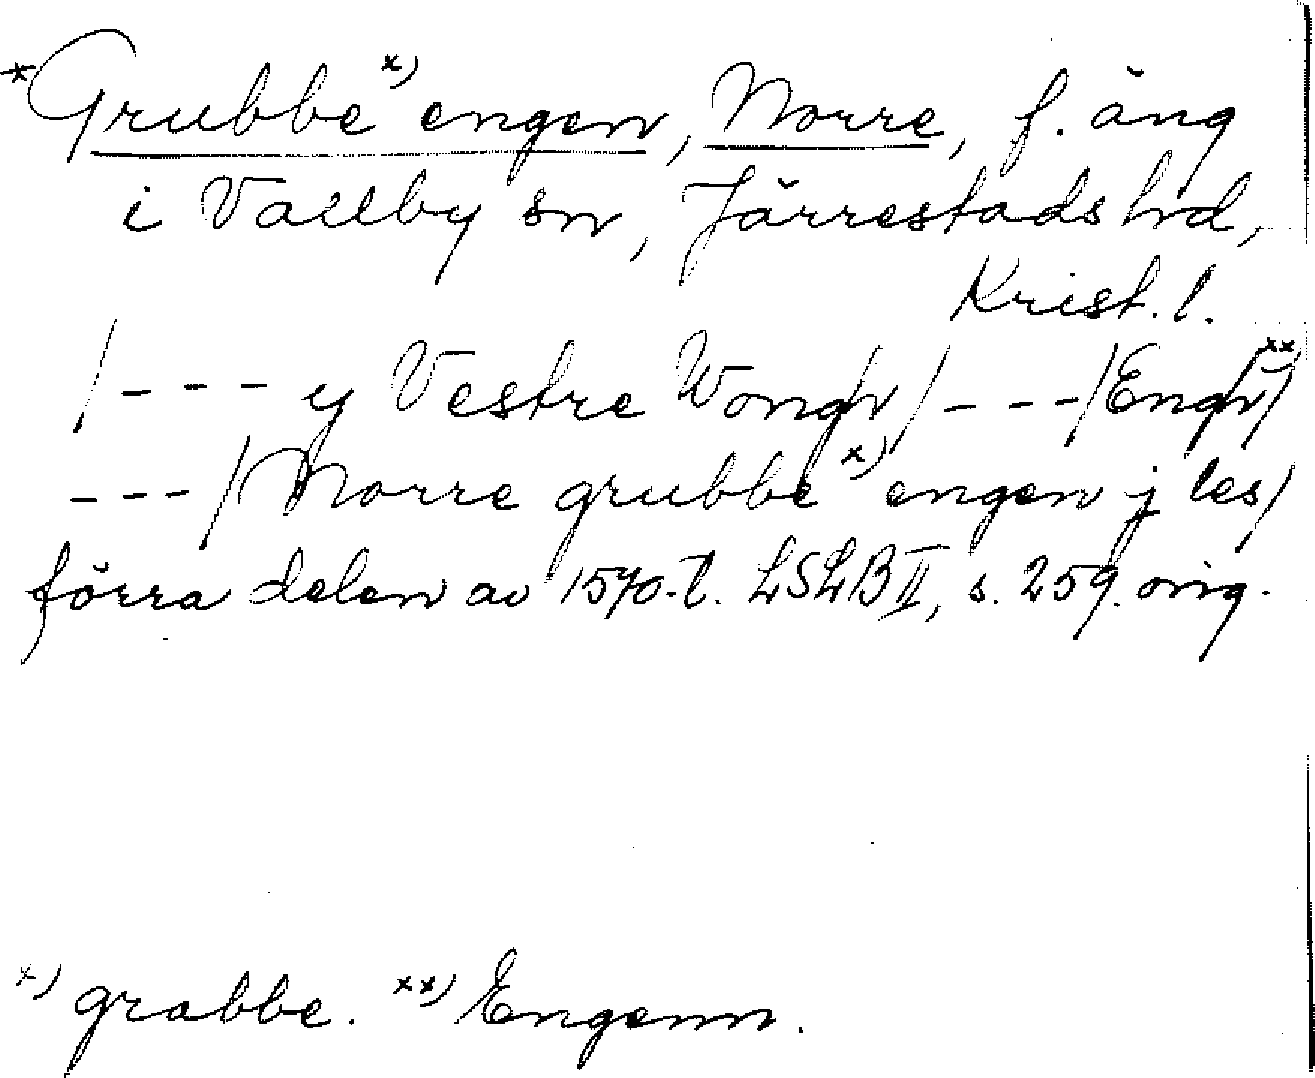 *Grubbe x) engen, Norre, f. äng
i Vallby sn, Järrestads hd,
Krist. l.
/--- y Vestre Wongn/ ---/Engn xx)/
---/Norre grubbe x) engen j les/
förra delen av 1570-t. LSLB II, s. 259. orig.
x) grabbe. xx) Engenn.